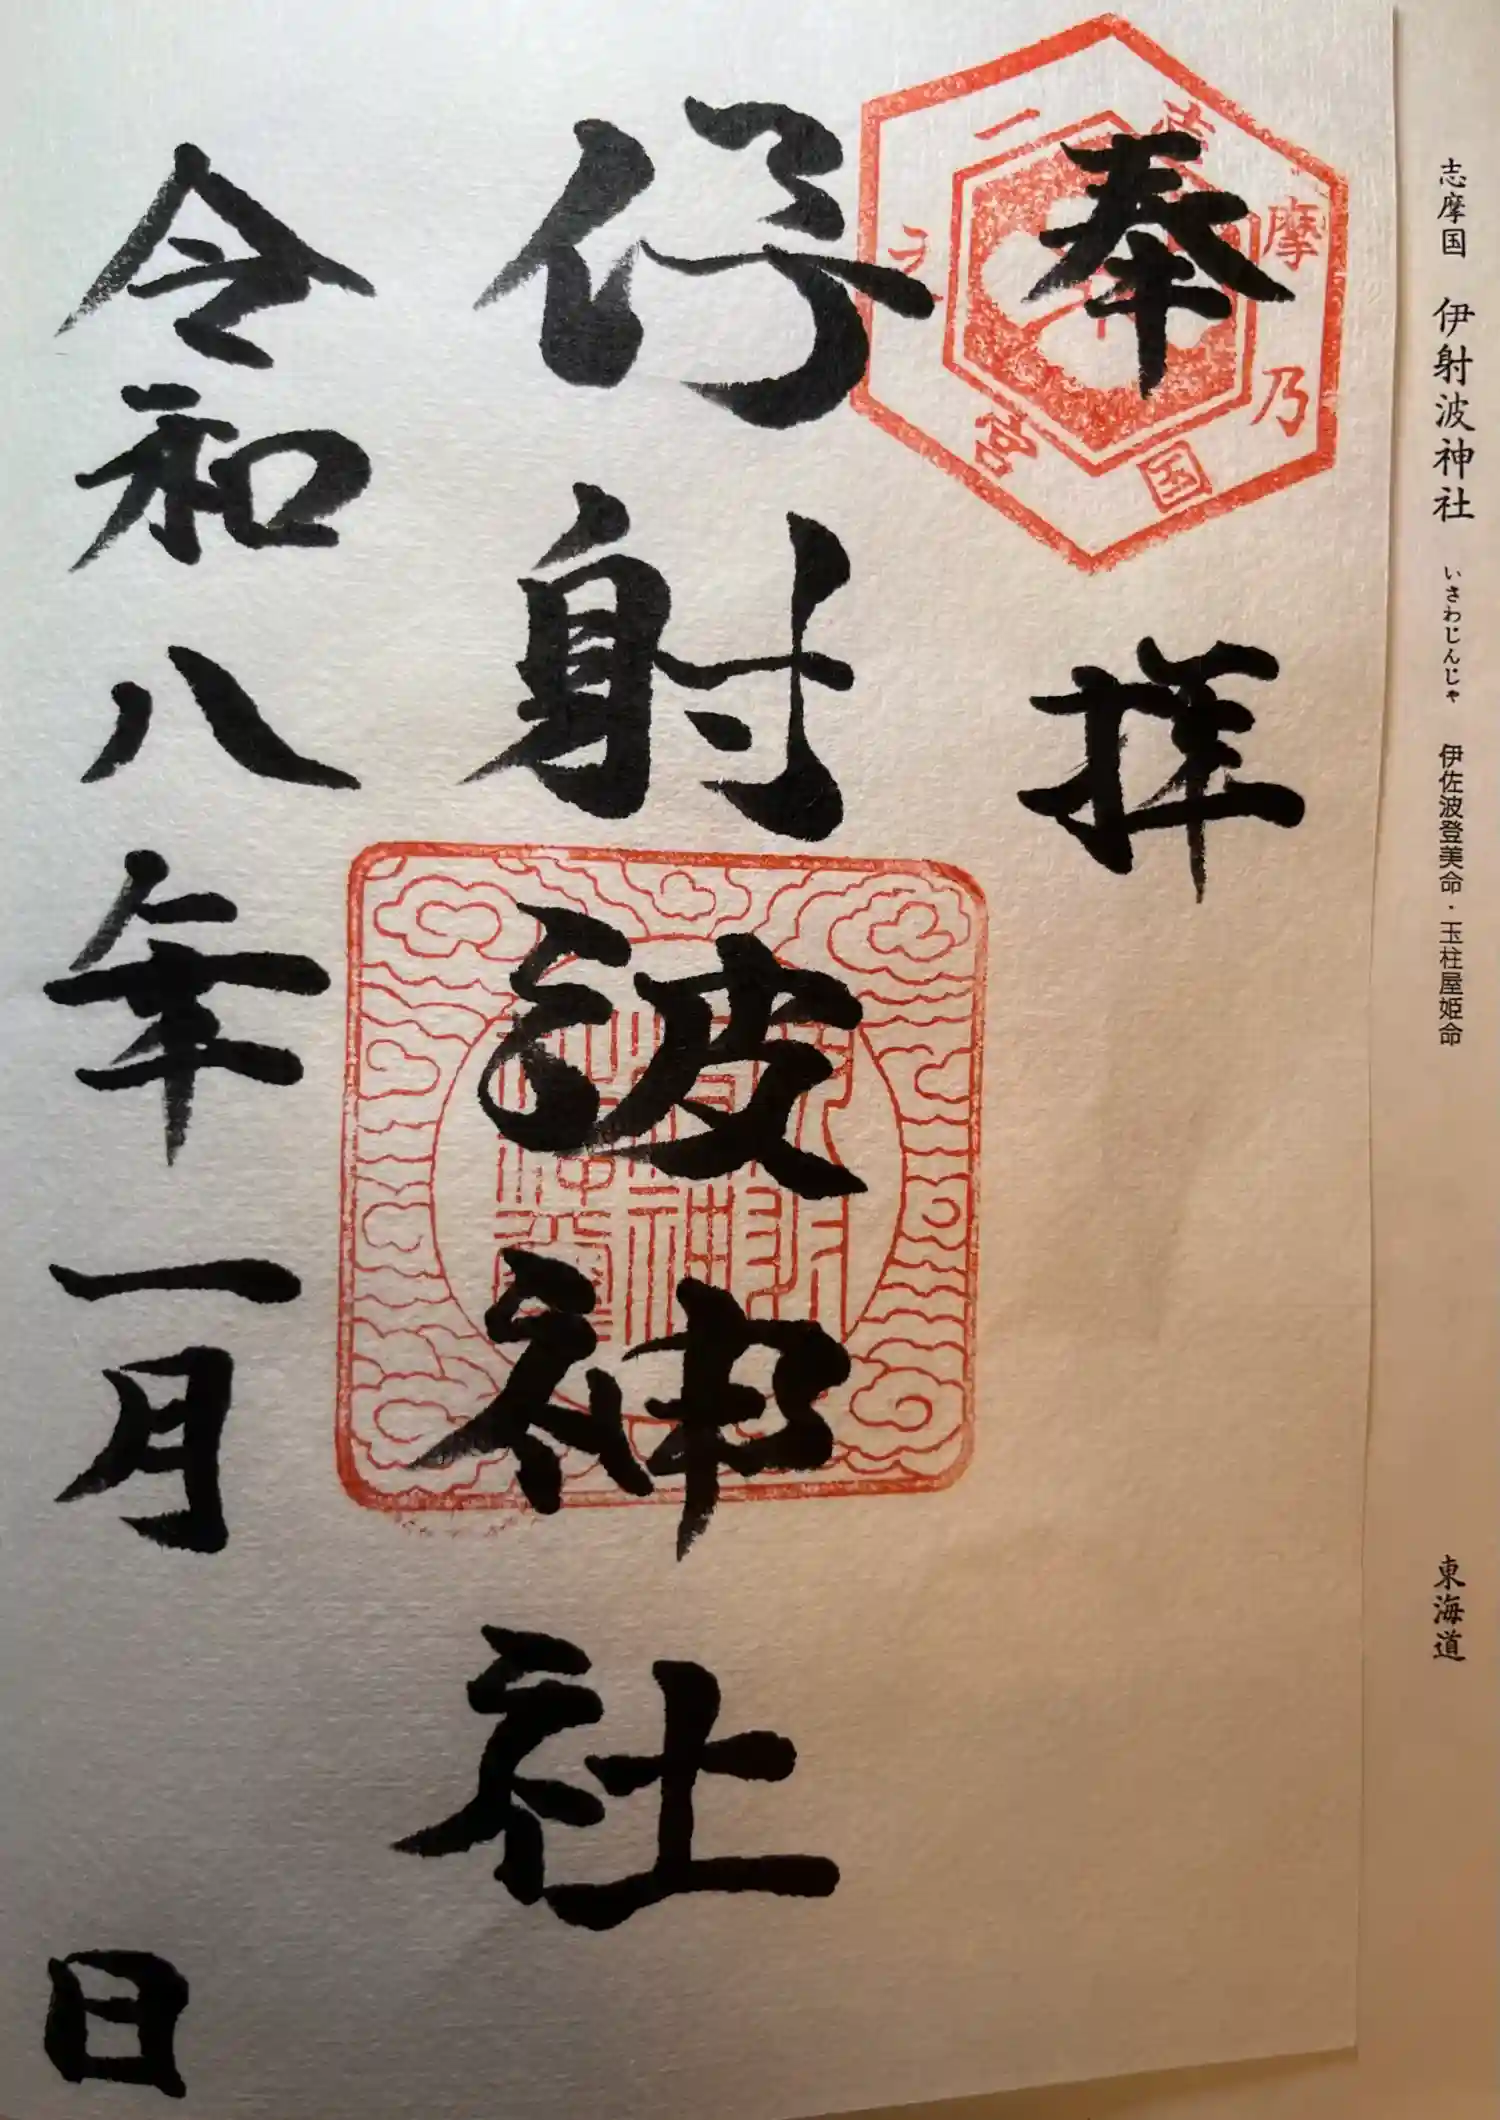 志摩国 伊射波神社 いさわじんじゃ 伊佐波登美命・玉柱屋姫命 東海道
奉拝
志摩乃国一之宮
伊射波神社
令和八年一月 日